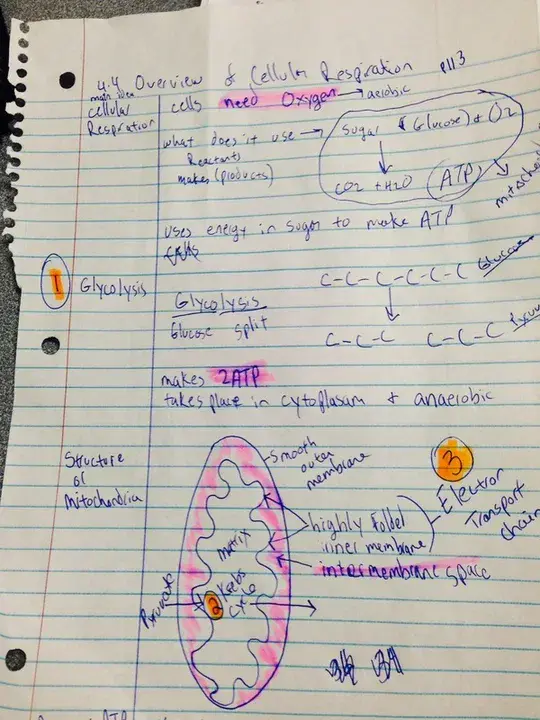 4.4 Overview of Cellular Respiration p113
main idea
cellular
Respiration
cells need Oxygen → aerobic
what does it use →
Reactants
makes (products)
Sugar (Glucose) + O2
CO2 + H2O ATP
uses energy in sugar to make ATP
1 Glycolysis
Glycolysis
Glucose split
C-C-C-C-C-C Glucose
C-C-C C-C-C
makes 2ATP
takes place in cytoplasam & anaerobic
Structure
of
Mitochondria
Smooth
outer
membrane
3
Electron
Transport
chain
highly folded
inner membrane
intermembrane space
matrix
Pyruvate
2 Krebs
Cycle